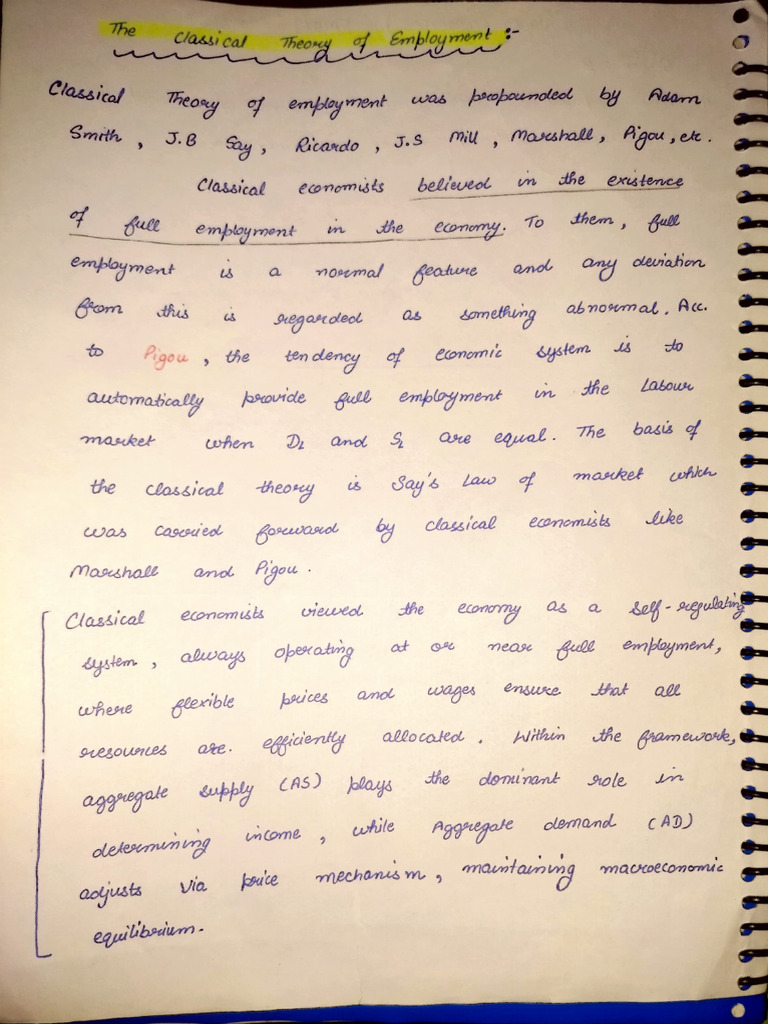 The Classical Theory of Employment :-
Classical Theory of employment was propounded by Adam
Smith, J.B Say, Ricardo, J.S Mill, Marshall, Pigou, etc.
Classical economists believed in the existence
of full employment in the economy. To them, full
employment is a normal feature and any deviation
from this is regarded as something abnormal. Acc.
to Pigou, the tendency of economic system is to
automatically provide full employment in the Labour
market when DL and SL are equal. The basis of
the classical theory is Say's Law of market which
was carried forward by classical economists like
Marshall and Pigou.
Classical economists viewed the economy as a self-regulating
system, always operating at or near full employment,
where flexible prices and wages ensure that all
resources are. efficiently allocated. Within the framework,
aggregate supply (AS) plays the dominant role in
determining income, while Aggregate demand (AD)
adjusts via price mechanism, maintaining macroeconomic
equilibrium.